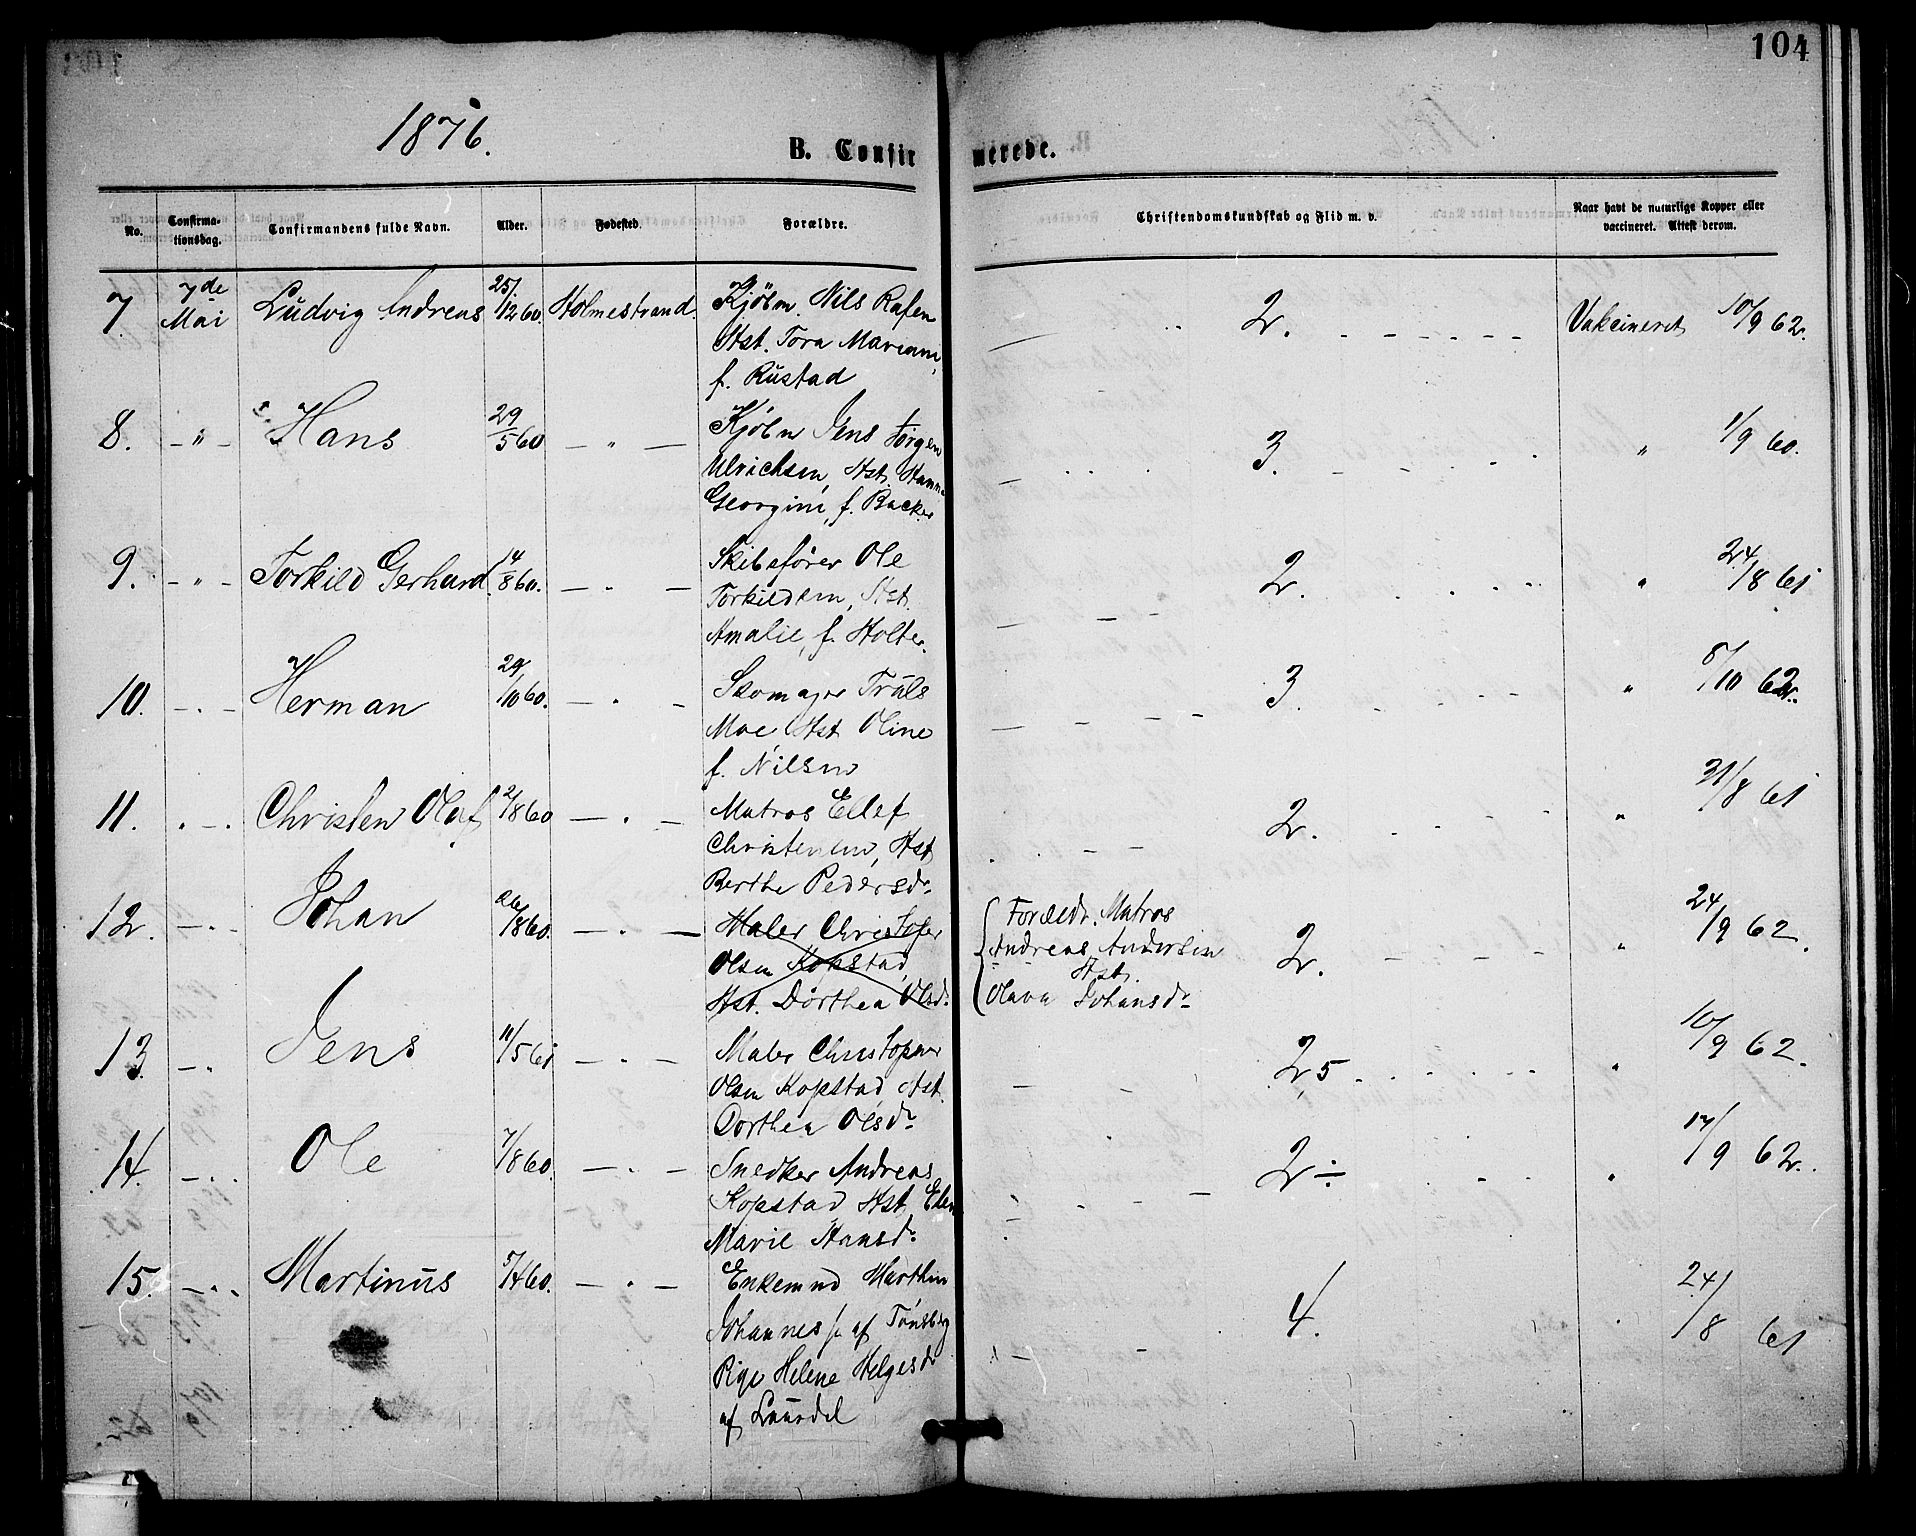 104
1876.
B. Confirmerede.
No. Confirmationsdag. Confirmandens fulde Navn. Alder. Fødested. Forældre. Christendomskundskab og Flid m. v. Naar havt de naturlige Kopper eller vaccineret. Attest derom.
7. 7de Mai Ludvig Andreas 25/12 60. Holmestrand. Kjøbm. Nils Rafen 2. Vakcineret 10/9 62.
Hst. Tora
f. Rustad
8. — " — Hans 29/5 60 — " — Kjøbm Jens Jørgen 3. " 1/9 60.
Ulrichsen, Hst. Hanna
Georgine, f. Backer
9. — " — Torkild Gerhard 14/8 60. — " — Skibsfører Ole 2. " 24/8 61
Torkildsen, Hst.
Amalie, f. Holter.
10. — " — Herman 29/10 60. — " — Skomager Truls 3. " 8/10 62.
Moe Hst Oline
f. Nilsen
11. " — " Christen Olaf 2/8 60 — " — Matros Ellef 2. " 31/8 61
Christensen, Hst
Berthe Pedersdr.
12. — " — Johan 26/8 60. — " — Maler Christofer Forældr. Matros 2. " 24/9 62.
Olsen Kopstad Andreas Andersen
Hst. Dorthea Olsdr. Hst.
Olava Johansdr
13. — " Jens 11/5 61 — " — Maler Christopher 2,5 " 10/9 62.
Olsen Kopstad, Hst.
Dorthea Olsdr
14. — " Ole 7/8 60. — " — Snedker Andreas 2÷ " 17/9 62.
Kopstad Hst. Elen
Marie Hansdr.
15. — " Martinus 5/4 60. — " — Enkemnd Marthin 4. 24/8 61
Johannes af Tønsberg
Pige Helene Helgesdr
af